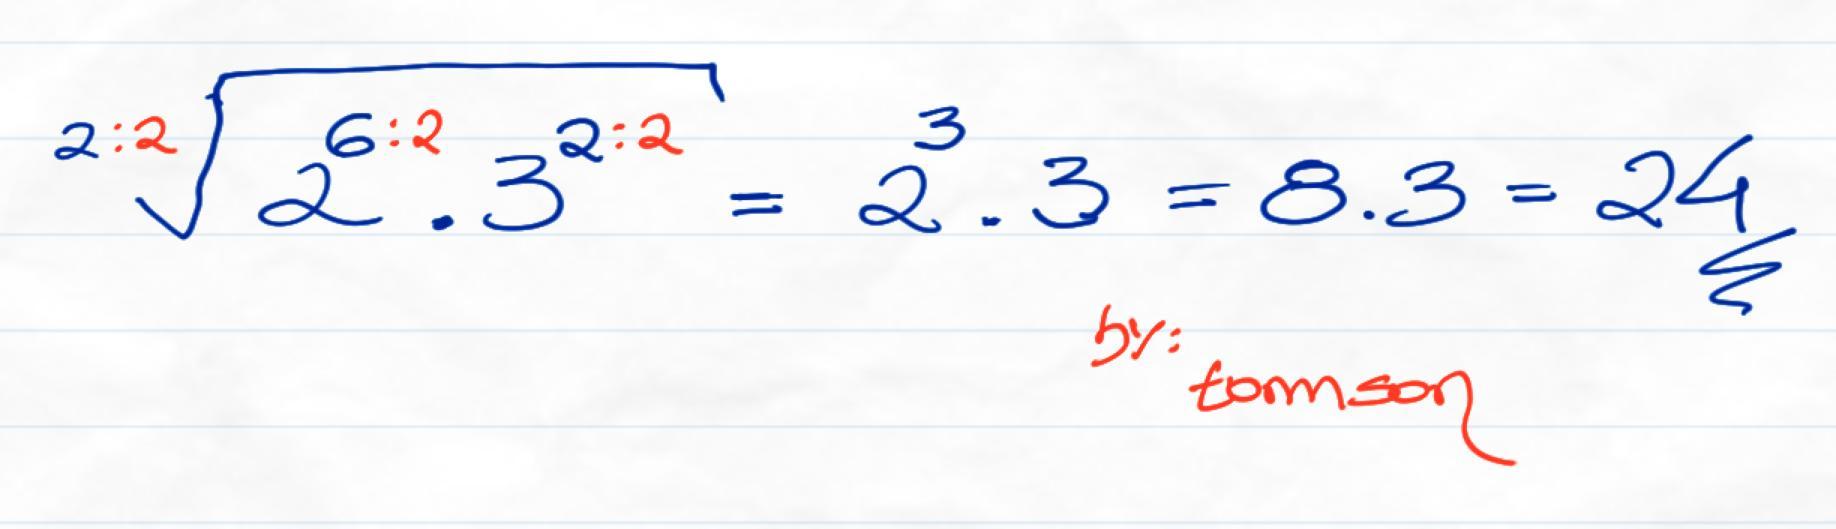 2:2√2^6:2 . 3^2:2 = 2^3 . 3 = 8.3 = 24
by:
tomson